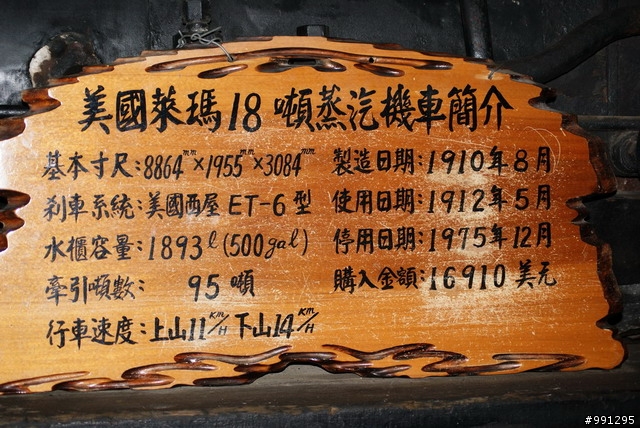 美國萊瑪18噸蒸汽機車簡介
基本寸尺:8864mm×1955mm×3084mm 製造日期:1910年8月
刹車系統:美國西屋ET-6型 使用日期:1912年5月
水櫃容量:1893ℓ(500gal) 停用日期:1975年12月
牽引噸數: 95噸 購入金額:16910美元
行車速度:上山11KM/H下山14KM/H
#991295